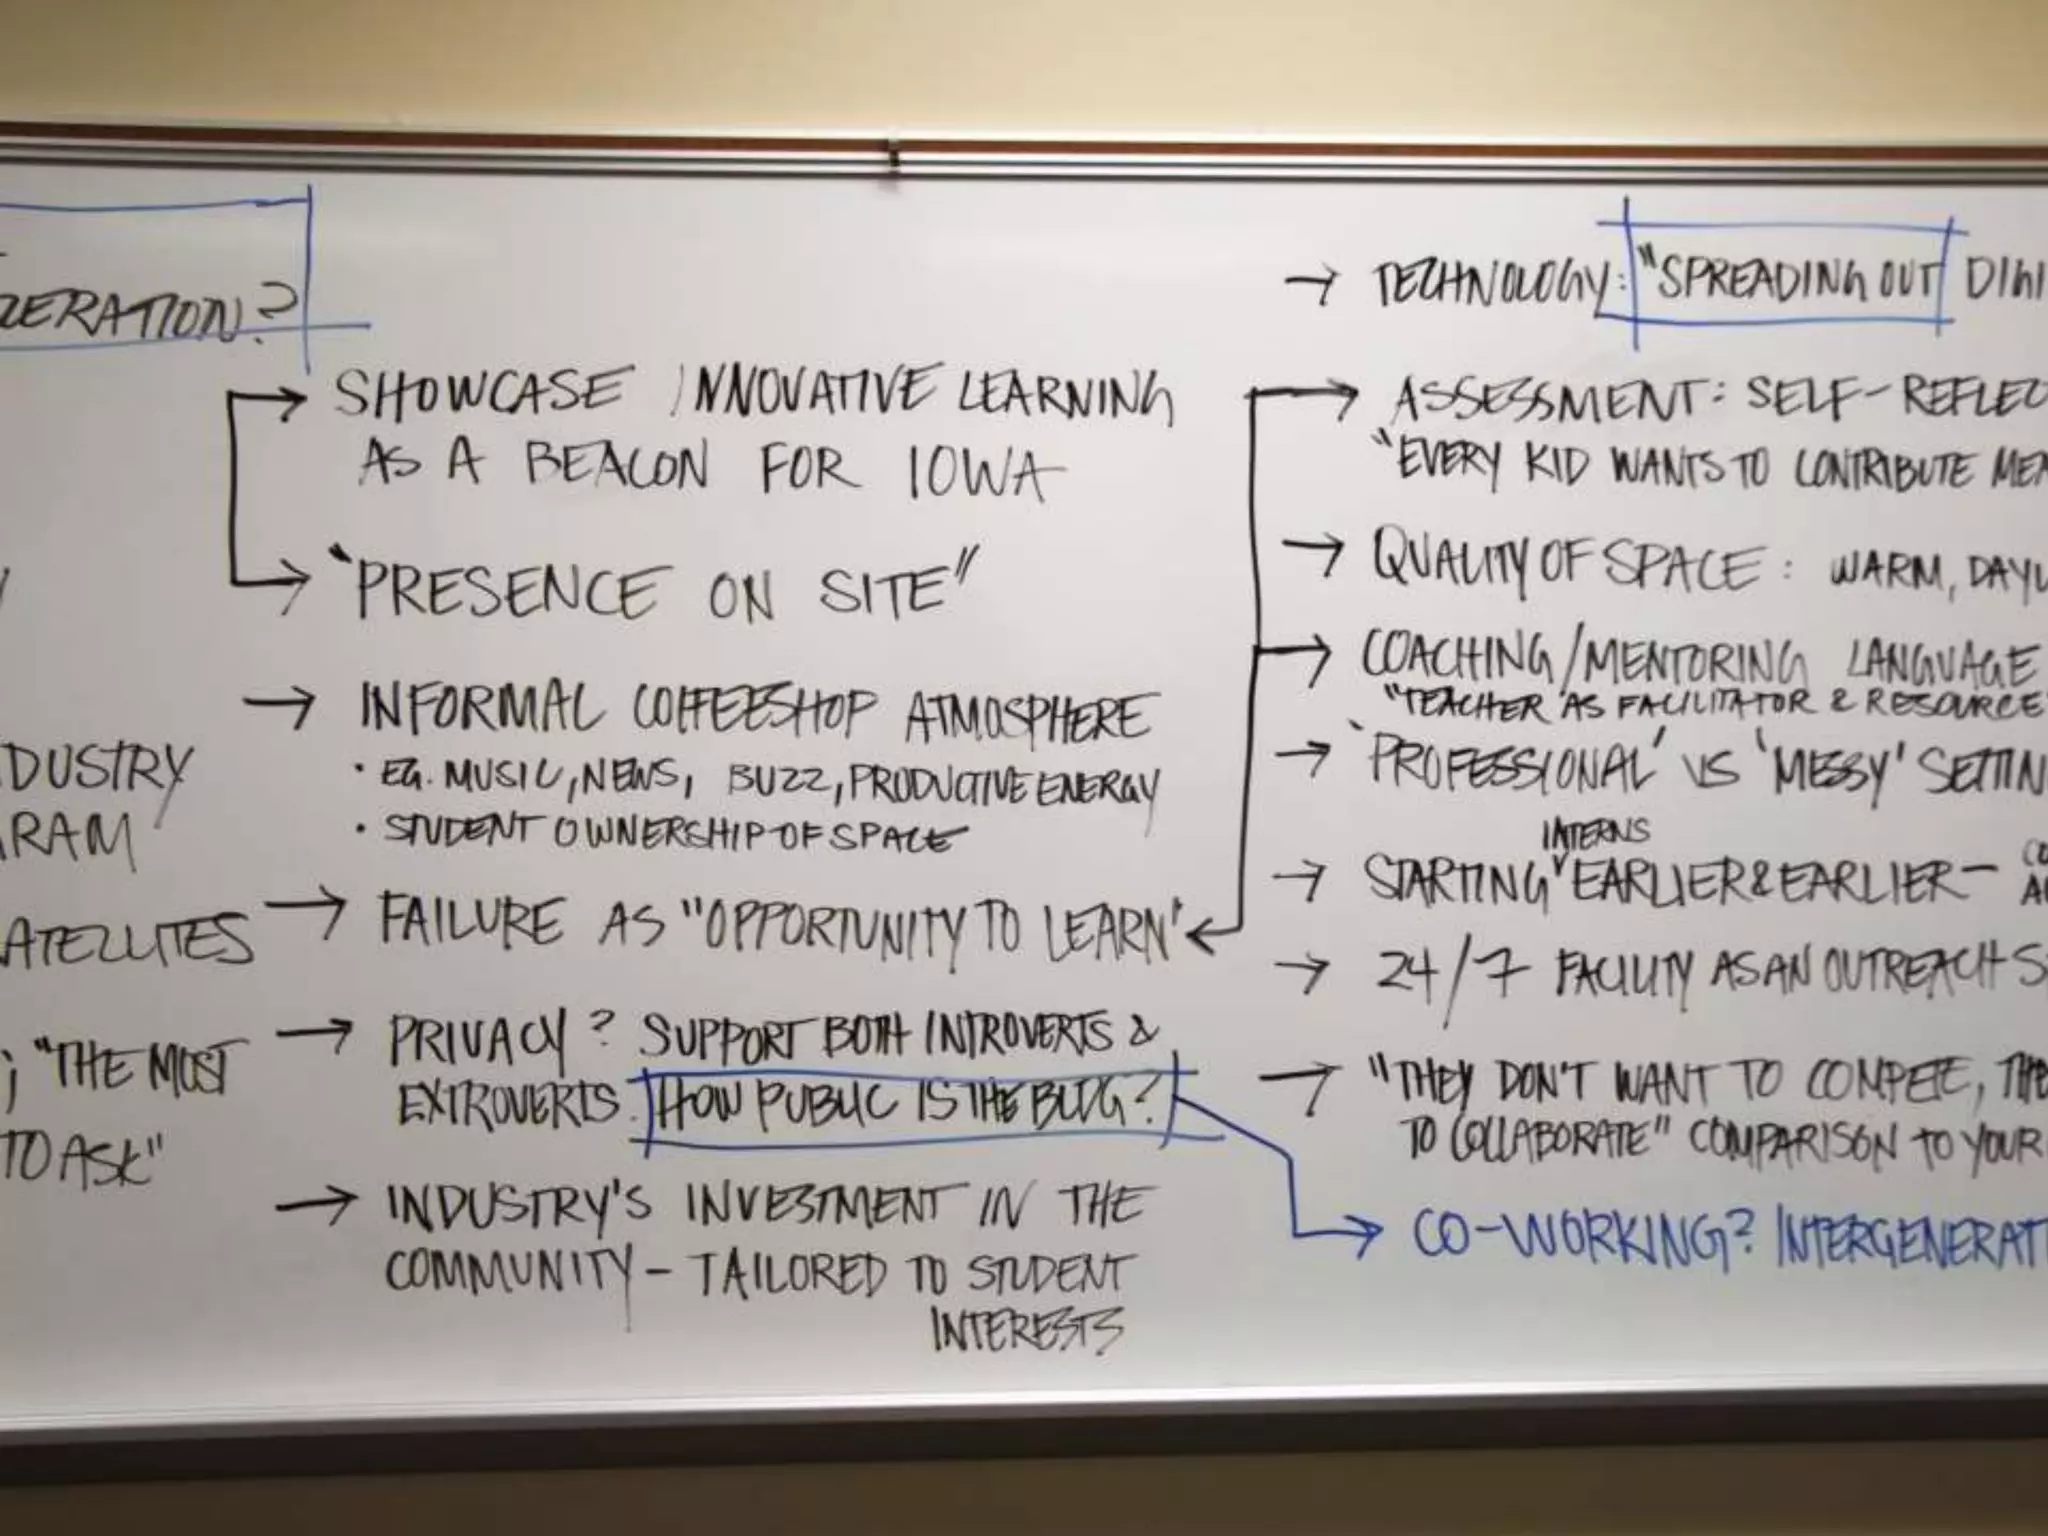 ZERATION?
DUSTRY
RAM
ATELLITES
; "THE MOST
TO ASK"
→ SHOWCASE INNOVATIVE LEARNING
AS A BEACON FOR IOWA
→ "PRESENCE ON SITE"
→ INFORMAL COFFEESHOP ATMOSPHERE
• EG. MUSIC, NEWS, BUZZ, PRODUCTIVE ENERGY
• STUDENT OWNERSHIP OF SPACE
→ FAILURE AS "OPPORTUNITY TO LEARN"
→ PRIVACY? SUPPORT BOTH INTROVERTS &
EXTROVERTS. HOW PUBLIC IS THE BLDG?
→ INDUSTRY'S INVESTMENT IN THE
COMMUNITY - TAILORED TO STUDENT
INTERESTS
→ TECHNOLOGY: "SPREADING OUT DIGI
→ ASSESSMENT: SELF-REFLEC
"EVERY KID WANTS TO CONTRIBUTE MEA
→ QUALITY OF SPACE: WARM, DAYL
→ COACHING/MENTORING LANGUAGE
"TEACHER AS FACILITATOR & RESOURCE"
→ 'PROFESSIONAL' VS 'MESSY' SETTIN
INTERNS
→ STARTING EARLIER & EARLIER - CO
→ 24/7 FACILITY AS AN OUTREACH S
→ "THEY DON'T WANT TO COMPETE, THE
TO COLLABORATE" COMPARISON TO YOUR
→ CO-WORKING? INTERGENERATI